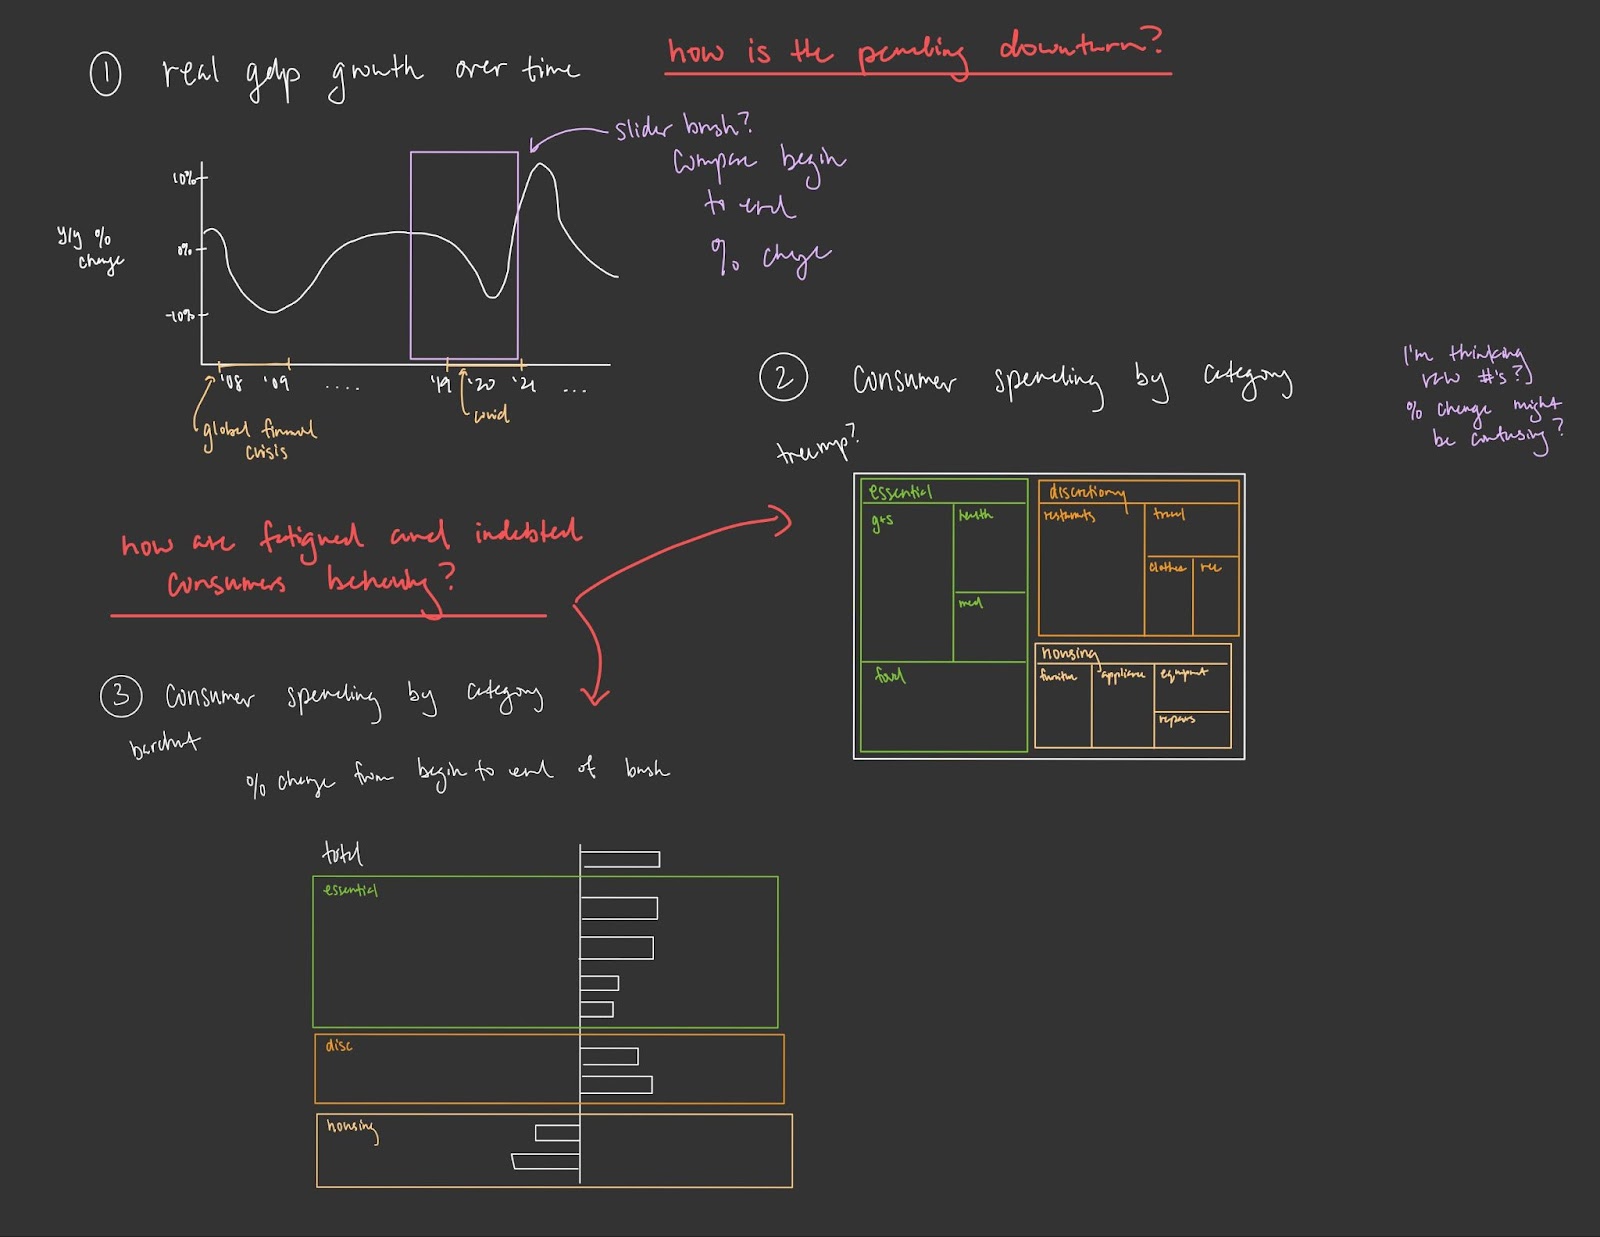 ① real gdp growth over time
how is the pending downturn?
slider brush?
Compare begin
to end
% change
10%
y/y %
change
0%
-10%
'08 '09 .... '19 '20 '21 ...
global financial
crisis
covid
② Consumer spending by category
treemap?
I'm thinking
raw #'s?
% change might
be confusing?
essential
g+s
health
med
food
discretionary
restaurants
travel
clothes
rec
housing
furniture
appliance
equipment
repairs
how are fatigued and indebted
consumers behaving?
③ Consumer spending by category
barchart
% change from begin to end of brush
total
essential
disc
housing